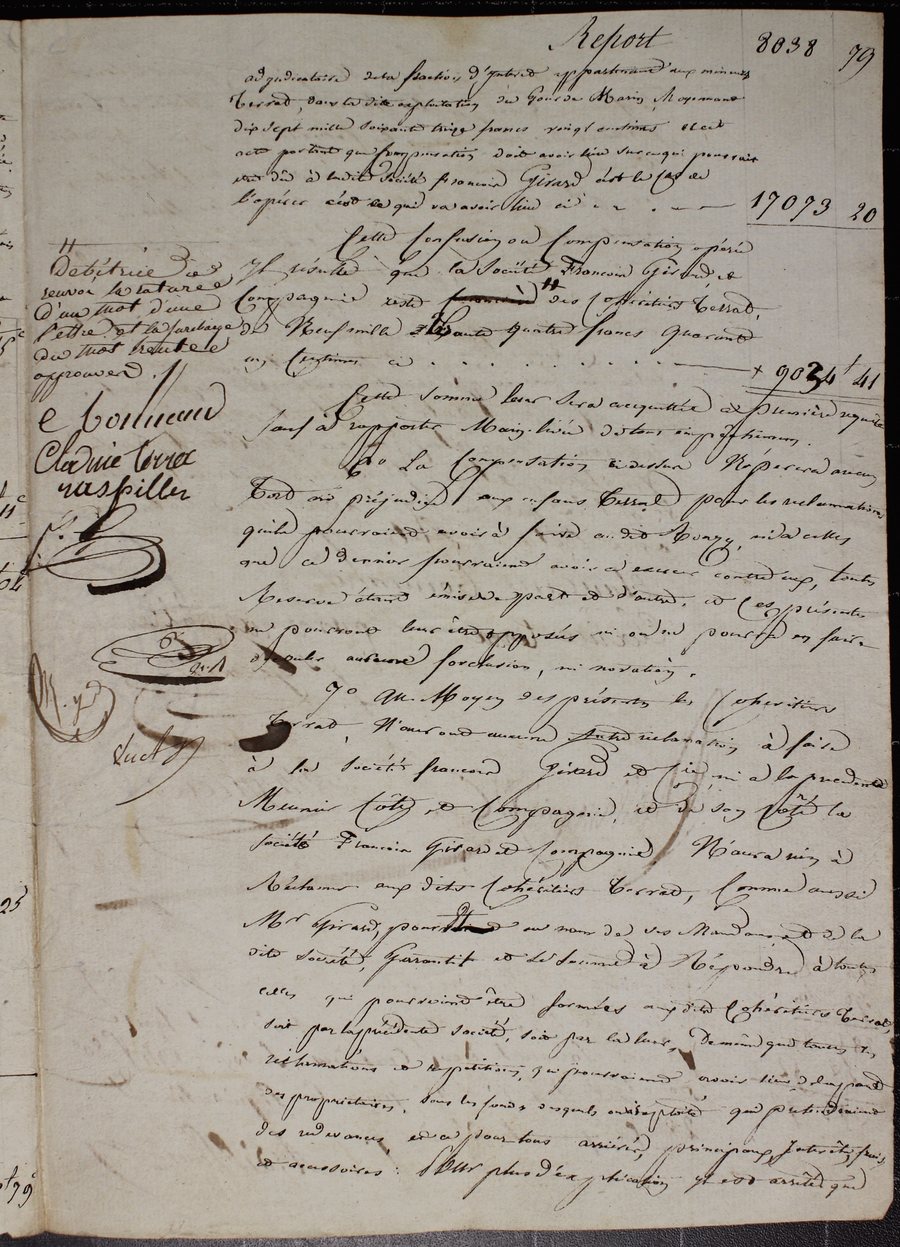 Report 8038 79
adjudicataire de la fraction d'interet appartenant aux mineurs
Terrat, dans la dite exploitation du Gour de Marin, Moyennant
dix sept mille soixante treize francs vingt centimes et cet
acte portant que compensation doit avoir lieu sur ce qui pourrait
être dû à ladite Société francois Girard, c'est le cas de
l'opérer c'est ce qui va avoir lieu ci 17093 20
Cette Confusion ou Compensation opérée
Il résulte que la Société Francois Girard et
Compagnie reste des Cohéritiers Terrat,
de Neuf mille trente quatre francs quarante
un Centimes ci + 9034f 41
Cette somme leur sera acquittée à première réquisition
sauf à rapporter Main levée de tous empêchemens.
6o La Compensation ci dessus N'opérera aucun
Tord ni préjudice aux enfans Terrat pour les réclamations
qu'ils pourraient avoir à faire audit Tongy, ni à celles
que ce dernier pourraient avoir à exercer contre eux, toutes
Reserves étant émises de part et d'autre, et Ces présentes
ne pourront leur être opposés ni on ne pourra en faire
résulter aucune forclusion, ni novation.
7o Au Moyen des présentes les Cohéritiers
Terrat, N'auront aucune autre réclamation à faire
à la Société francois Girard et Cie, ni a la précédente
Meunier Côte et Compagnie, et de son Côté la
société Francois Girard et Compagnie N'aura rien à
Réclamer aux dits Cohéritiers Terrat, Comme aussi
Mr Girard, pour et au nom de ses Mandans, et de la
dite société, Garantit et de Soumet à Répondre à toutes
celles qui pourraient être formées auxdits Cohéritiers Terrat,
soit par la précédente société, soit par la leur, De même que toutes les
réclamations et répétitions, qui pourraient avoir lieu de la part
des propriétaires, sous les fonds desquels on a exploité qui prétendraient
des redevances, et ce pour tous arriérés, principaux, Intérêts, frais
et accessoires: Pour plus d'explication il est arrêté que
Débitrice ce
renvoi la rature
d'un mot d'une
lettre et la surcharge
du mot trente
approuvés.
e bonnard
Claudine terrat
raspiller